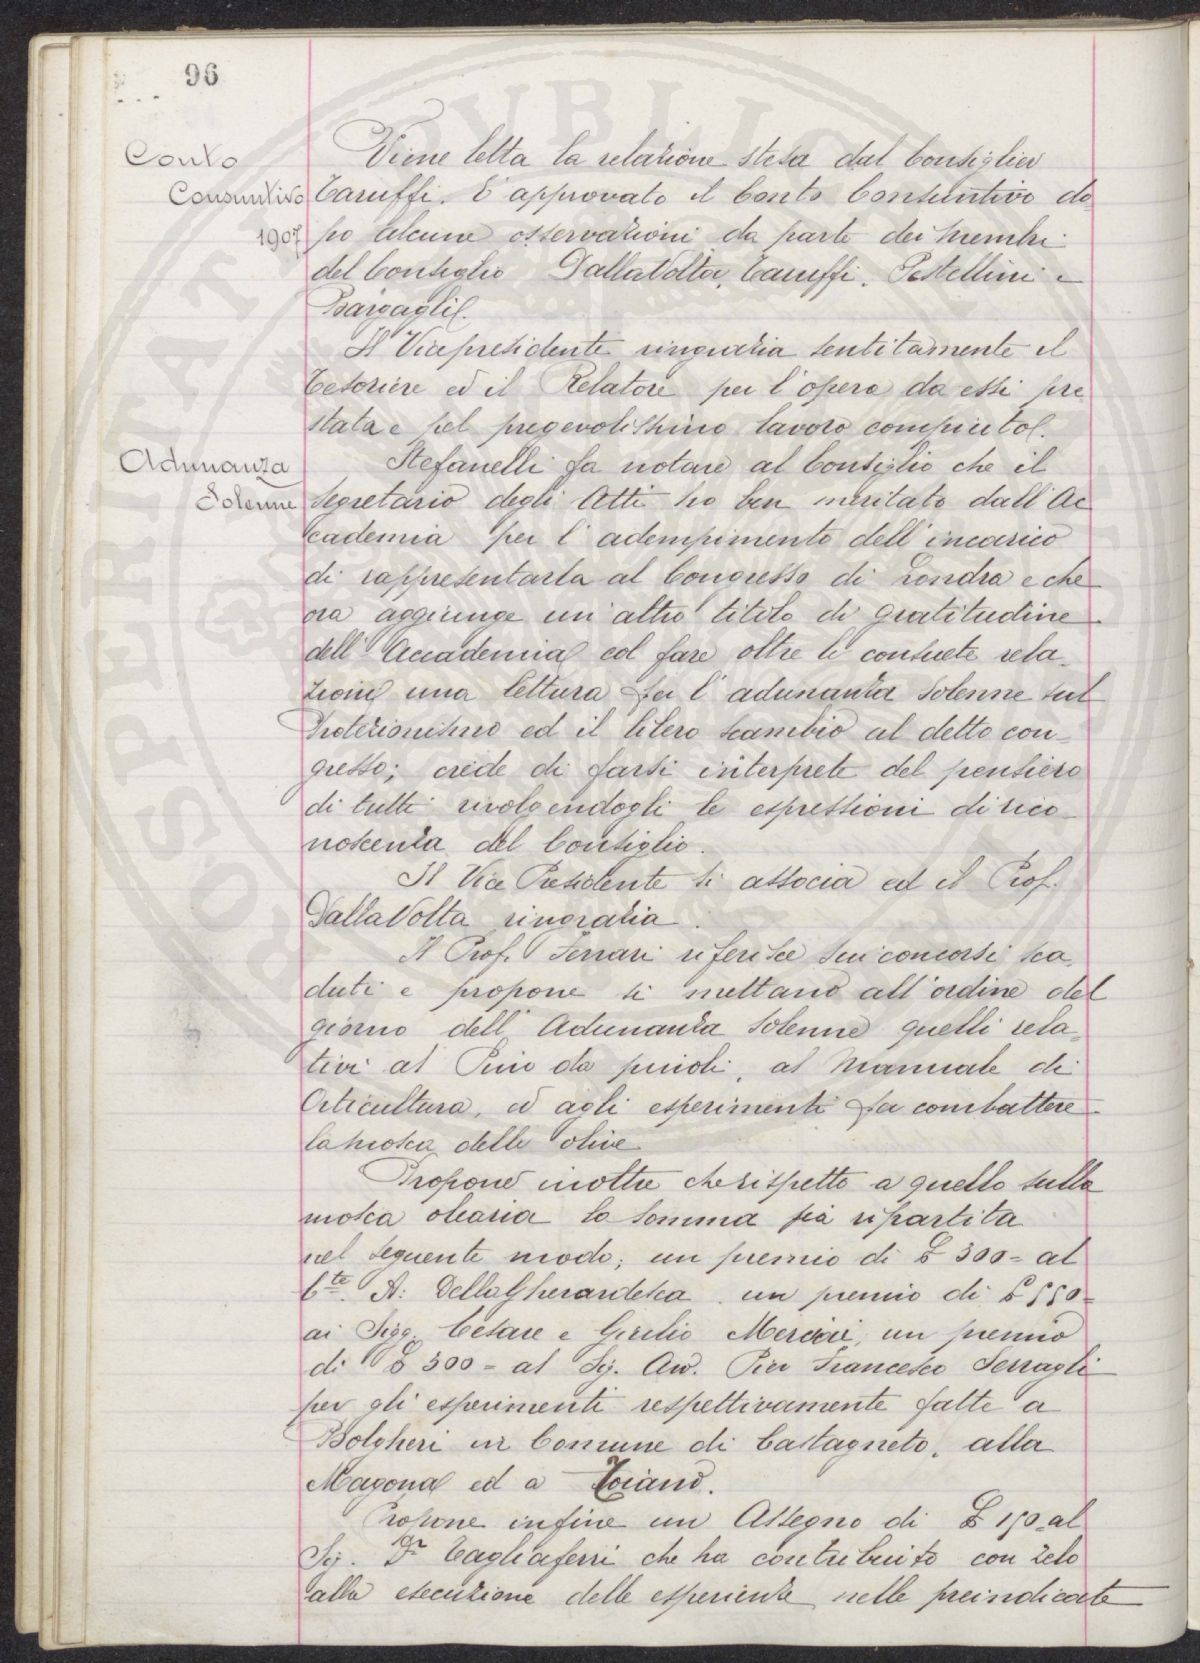 96
Conto
Consuntivo
1907
Viene letta la relazione stesa dal Consiglier
Taruffi. È approvato il Conto Consuntivo do-
po alcune osservazioni da parte dei membri
del Consiglio DallaVolta, Taruffi, Pestellini e
Bargagli.
Il Vicepresidente ringrazia sentitamente il
Tesoriere ed il Relatore per l'opera da essi pre
stata e pel pregevolissimo lavoro compiuto.
Adunanza
Solenne
Stefanelli fa notare al Consiglio che il
Segretario degli Atti ha ben meritato dall'Ac
cademia per l'adempimento dell'incarico
di rappresentarla al Congresso di Londra e che
ora aggiunge un'altro titolo di gratitudine
dell'Accademia col fare oltre le consuete rela-
zioni una lettura per l'adunanza solenne sul
Protezionismo ed il libero scambio al detto con-
gresso; crede di farsi interprete del pensiero
di tutti rivolgendogli le espressioni di rico-
noscenza del Consiglio.
Il Vice Presidente si associa ed il Prof.
DallaVolta ringrazia.
Il Prof. Ferrari riferisce sui concorsi sca
duti e propone si mettano all'ordine del
giorno dell'Adunanza Solenne quelli rela-
tivi al Pino da pinoli, al Manuale di
Orticultura, ed agli esperimenti per combattere
la mosca delle olive
Propone inoltre che rispetto a quello sulla
mosca olearia la somma sia ripartita
nel seguente modo; un premio di £ 300= al
Cte. A: DellaGherardesca un premio di £ 550=
ai Sigg. Cesare e Giulio Mercini, un premio
di £ 300= al Sig. Avv. Pier Francesco Serragli
per gli esperimenti respettivamente fatte a
Bolgheri in Comune di Castagneto, alla
Magona ed a Toiano.
Propone infine un Assegno di £ 150= al
Sig. Dr Tagliaferri che ha contribuito con zelo
alla esecuzione delle esperienze nelle preindicate
PROSPERITATI PUBLICAE